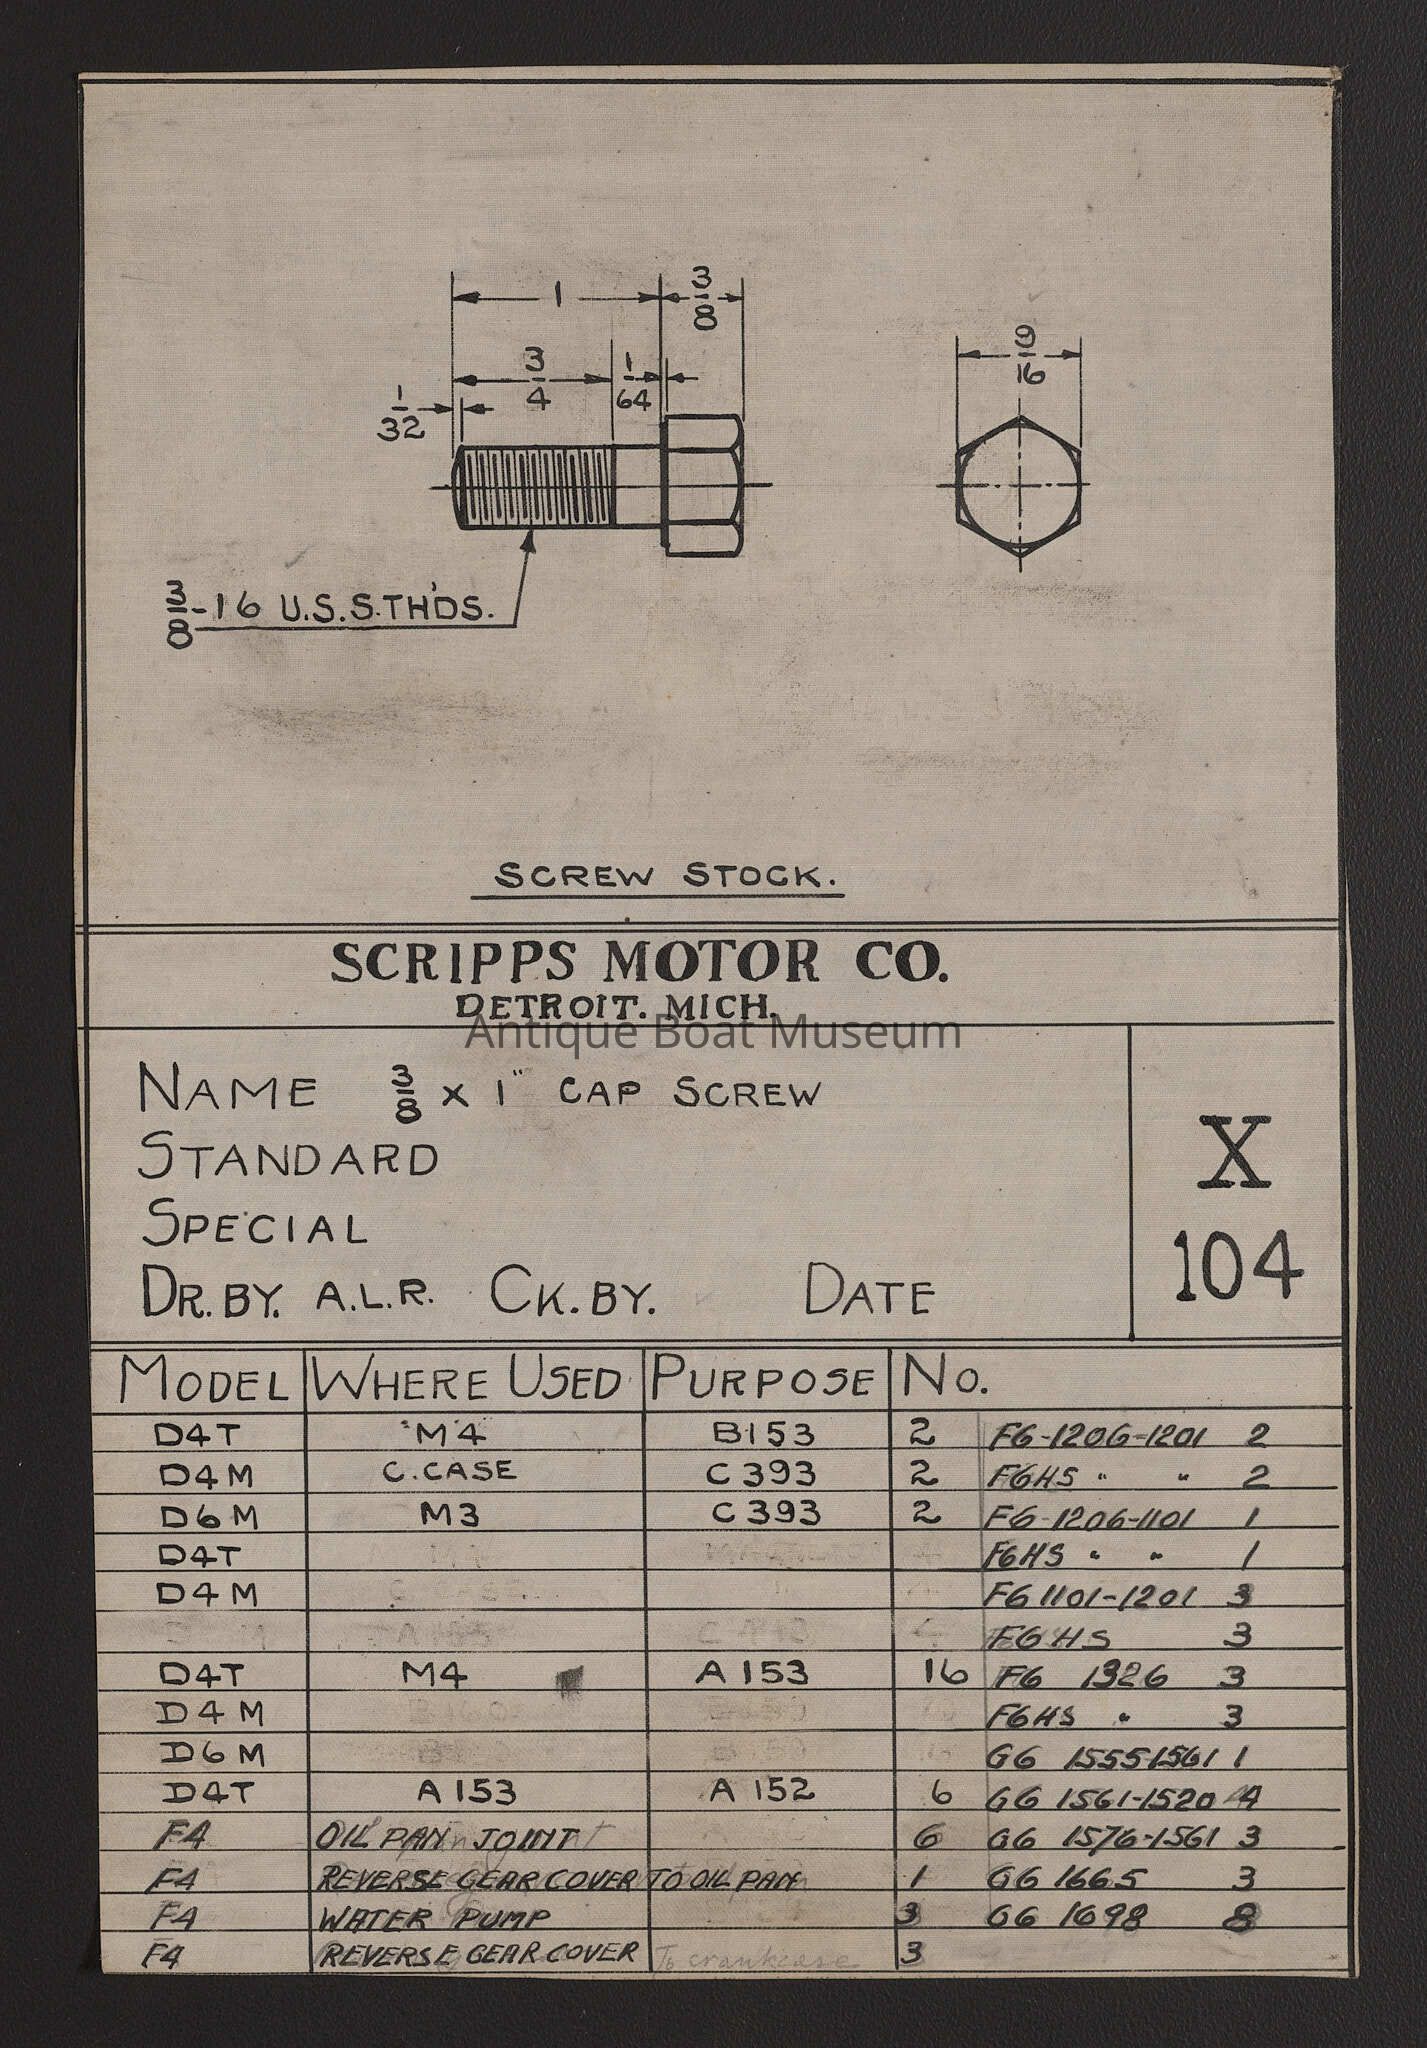 1 3/8
3/4 1/64
1/32
9/16
3/8-16 U.S.S.TH'DS.
SCREW STOCK.
SCRIPPS MOTOR CO.
DETROIT. MICH.
Antique Boat Museum
NAME 3/8 X 1" CAP SCREW
STANDARD
SPECIAL
DR. BY. A.L.R. CK. BY. DATE
X
104
MODEL WHERE USED PURPOSE NO.
D4T "M4 B153 2 F6-1206-1201 2
D4M C.CASE C393 2 F6HS " " 2
D6M M3 C393 2 F6-1206-1101 1
D4T F6HS " " 1
D4M F6 1101-1201 3
F6HS 3
D4T M4 A153 16 F6 1326 3
D4M F6HS " 3
D6M G6 1555-1561 1
D4T A153 A152 6 G6 1561-1520 4
F4 OIL PAN JOINT 6 G6 1576-1561 3
F4 REVERSE GEAR COVER TO OIL PAN 1 G6 1665 3
F4 WATER PUMP 3 G6 1698 8
F4 REVERSE GEAR COVER To crankcase 3